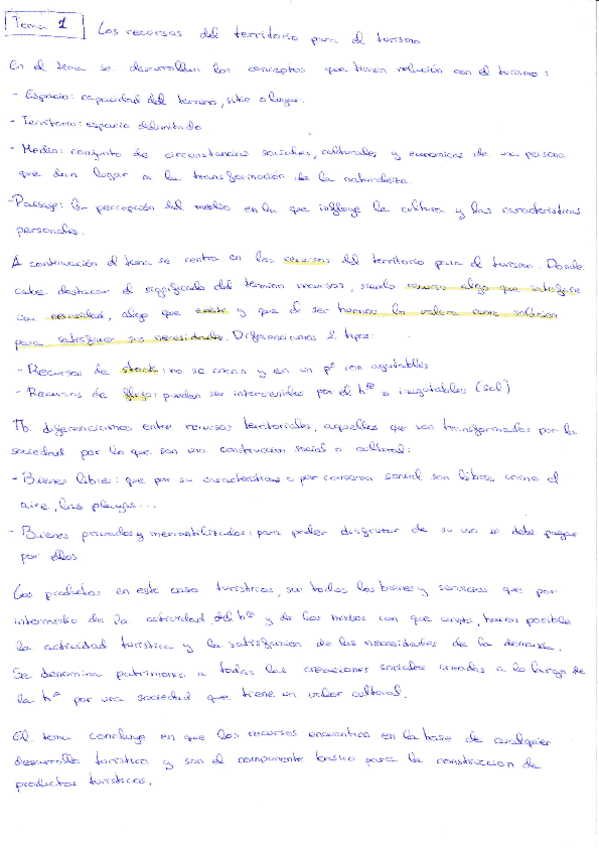 Tema 1 Los recursos del territorio para el turismo
En el tema se desarrollan los conceptos que tienen relación con el turismo:
- Espacio: capacidad del terreno, sitio o lugar.
- Territorio: espacio delimitado
- Medio: conjunto de circunstancias sociales, culturales y economicas de una persona
que dan lugar a la transformación de la naturaleza.
- Paisaje: la percepción del medio en la que influye la cultura y las características
personales.
A continuación el tema se centra en los recursos del territorio para el turismo. Donde
cabe destacar el significado del termino recursos, siendo recurso algo que satisface
una necesidad, algo que existe y que el ser humano lo valora como solucion
para satisfacer sus necesidades. Diferenciamos 2 tipos:
- Recursos de stock: no se crean y en un pº son agotables
- Recursos de flujo: pueden ser intervenidos por el hº o inagotables (sol)
Tb. diferenciamos entre recursos territoriales, aquellos que son transformados por la
sociedad por lo que son una construccion social o cultural:
- Bienes libres: que por su caracteristicas o por consenso social son libres como el
aire, las playas...
- Bienes privados y mercantilizados: para poder disfrutar de su uso se debe pagar
por ellos
Los productos en este caso turísticos, son todos los bienes y servicios que por
intermedio de la actividad del hº y de los medios con que cuenta, hacen posible
la actividad turística y la satisfacion de las necesidades de la demanda.
Se denomina patrimonio a todas las creaciones sociales creadas a lo largo de
la hª por una sociedad que tiene un valor cultural.
El tema concluye en que los recursos encuentran en la base de cualquier
desarrollo turístico y son el componente basico para la construccion de
productos turísticos.